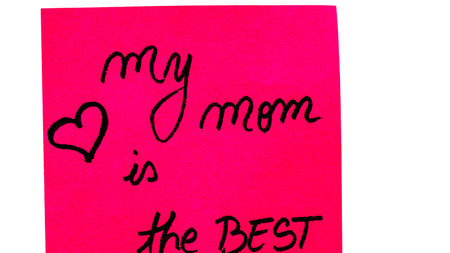 my
mom
is
the BEST